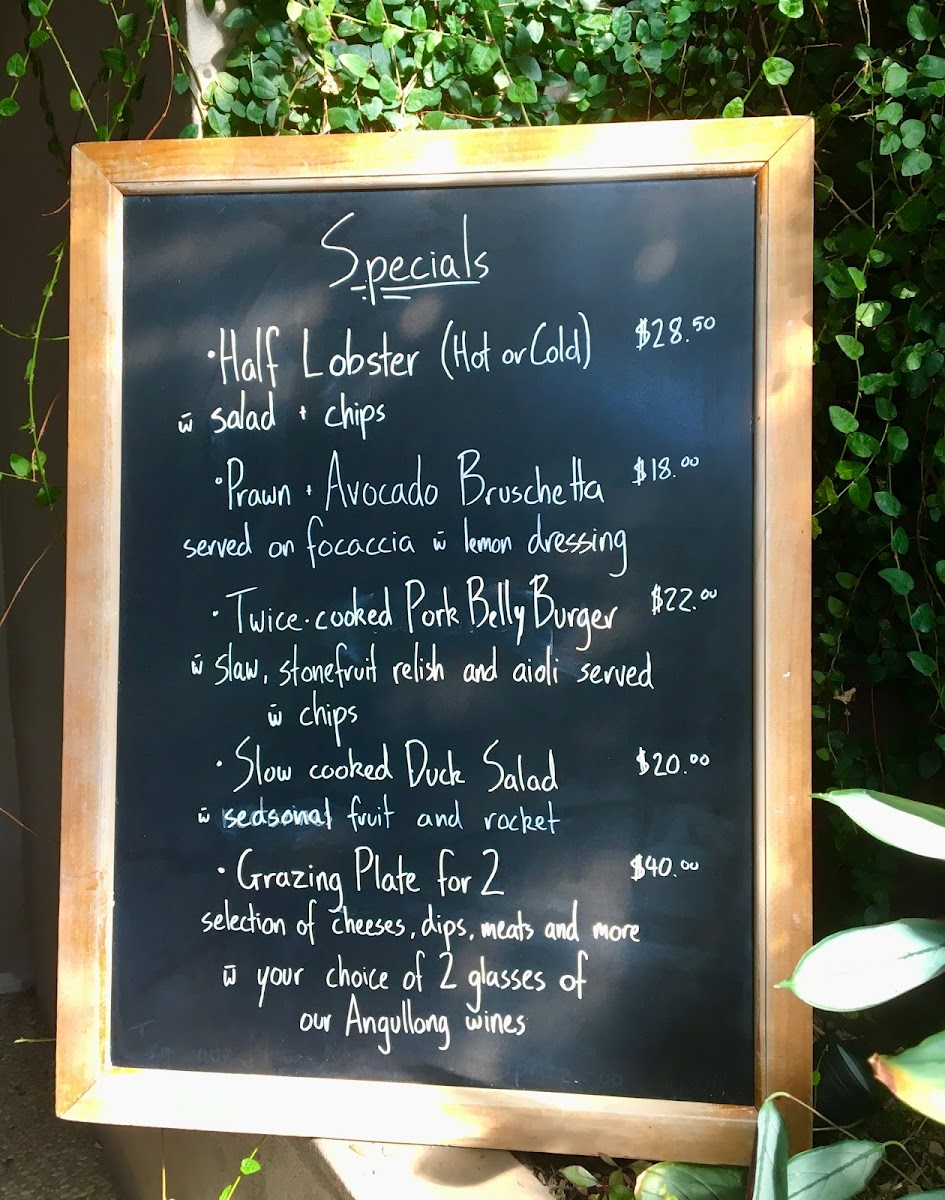 Specials
·Half Lobster (Hot or Cold) $28.50
w̄ salad + chips
·Prawn + Avocado Bruschetta $18.00
served on focaccia w̄ lemon dressing
·Twice-cooked Pork Belly Burger $22.00
w̄ slaw, stonefruit relish and aioli served
w̄ chips
·Slow cooked Duck Salad $20.00
w̄ seasonal fruit and rocket
·Grazing Plate for 2 $40.00
selection of cheeses, dips, meats and more
w̄ your choice of 2 glasses of
our Angullong wines